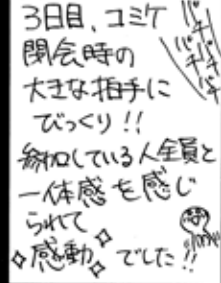 3日目、コミケ
閉会時の
大きな拍手に
びっくり!!
参加している人全員と
一体感を感じ
られて
感動でした!!
パチパチパチ